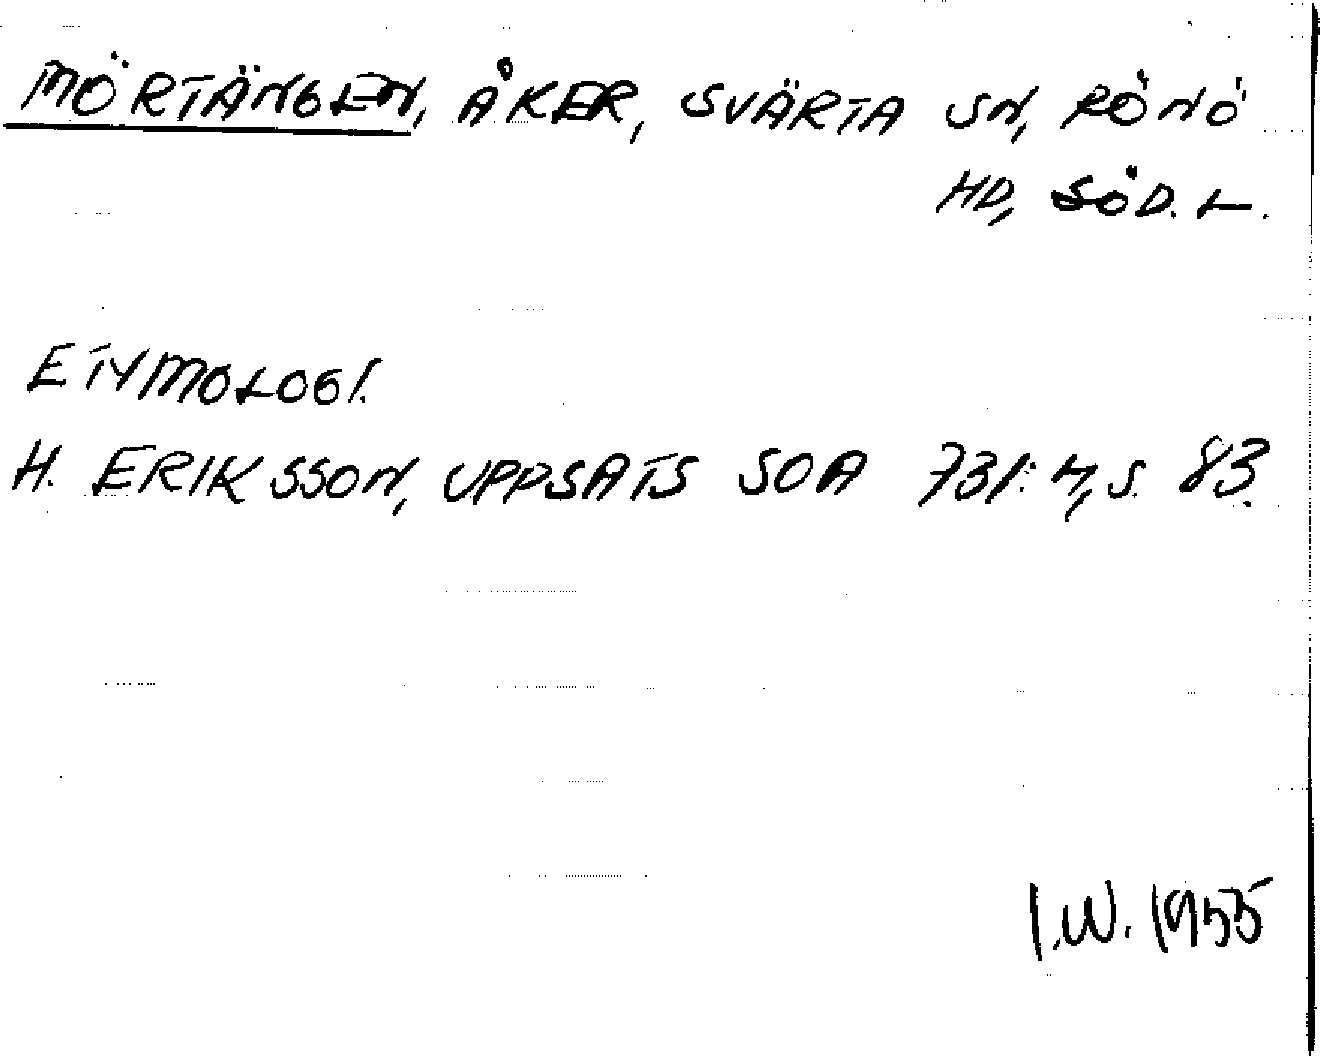 MÖRTÄNGEN, ÅKER, SVÄRTA SN, RÖNÖ
HD, SÖD. L.
ETYMOLOGI.
H. ERIKSSON, UPPSATS SOA 731:4, S. 83.
I.W. 1955